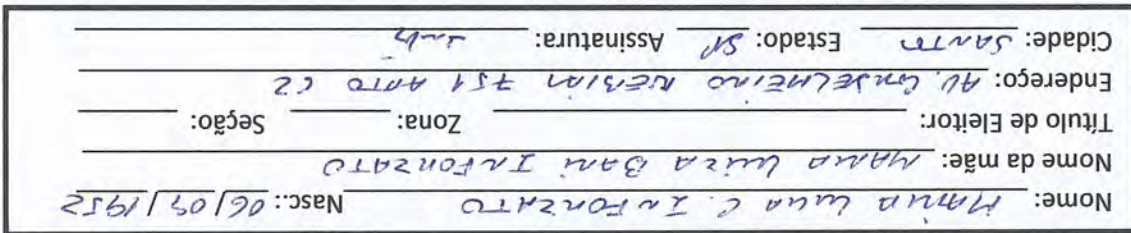 Nome: MARIA LUCIA C. INFONZATO Nasc.: 06/09/1952
Nome da mãe: MARIA LUIZA BANI INFONZATO
Título de Eleitor: Zona: Seção:
Endereço: AV. CONSELHEIRO NEBIAS 751 APTO 62
Cidade: SANTOS Estado: SP Assinatura: